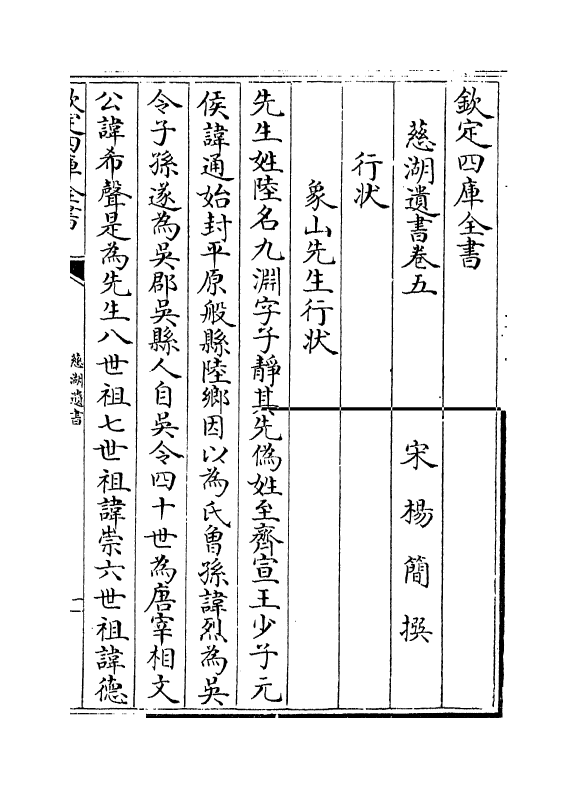 欽定四庫全書
慈湖遺書卷五
宋楊簡撰
行狀
象山先生行狀
先生姓陸名九淵字子靜其先偽姓至齊宣王少子元
侯諱通始封平原般縣陸鄉因以為氏曾孫諱烈為吳
令子孫遂為吳郡吳縣人自吳令四十世為唐宰相文
公諱希聲是為先生八世祖七世祖諱崇六世祖諱德
欽定四庫全書
慈湖遺書